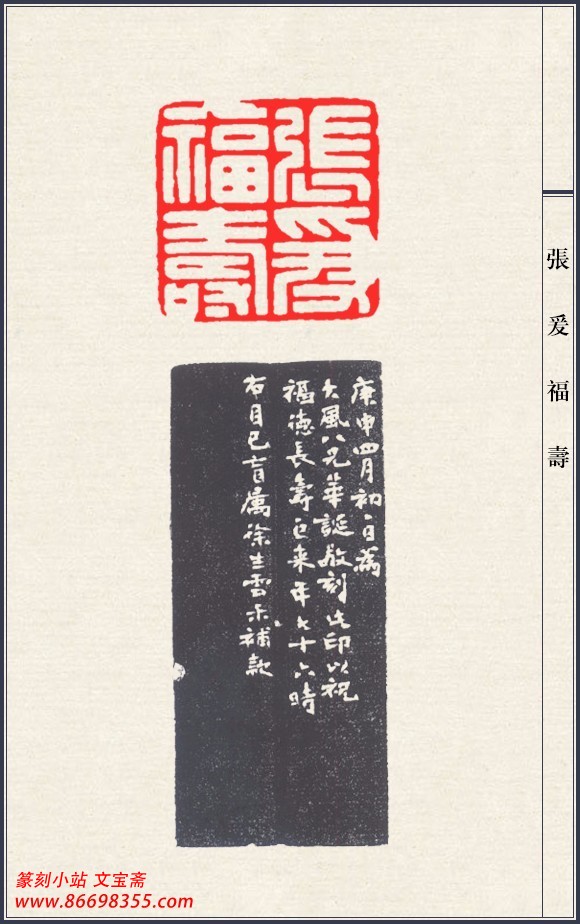 張爰福壽
張爰福壽
庚申四月初一日為
大風八兄華誕敬刻此印以祝
福德長壽巨来年七十六時
右目已盲属徐生雲禾補款
篆刻小站 文宝斋
www.86698355.com